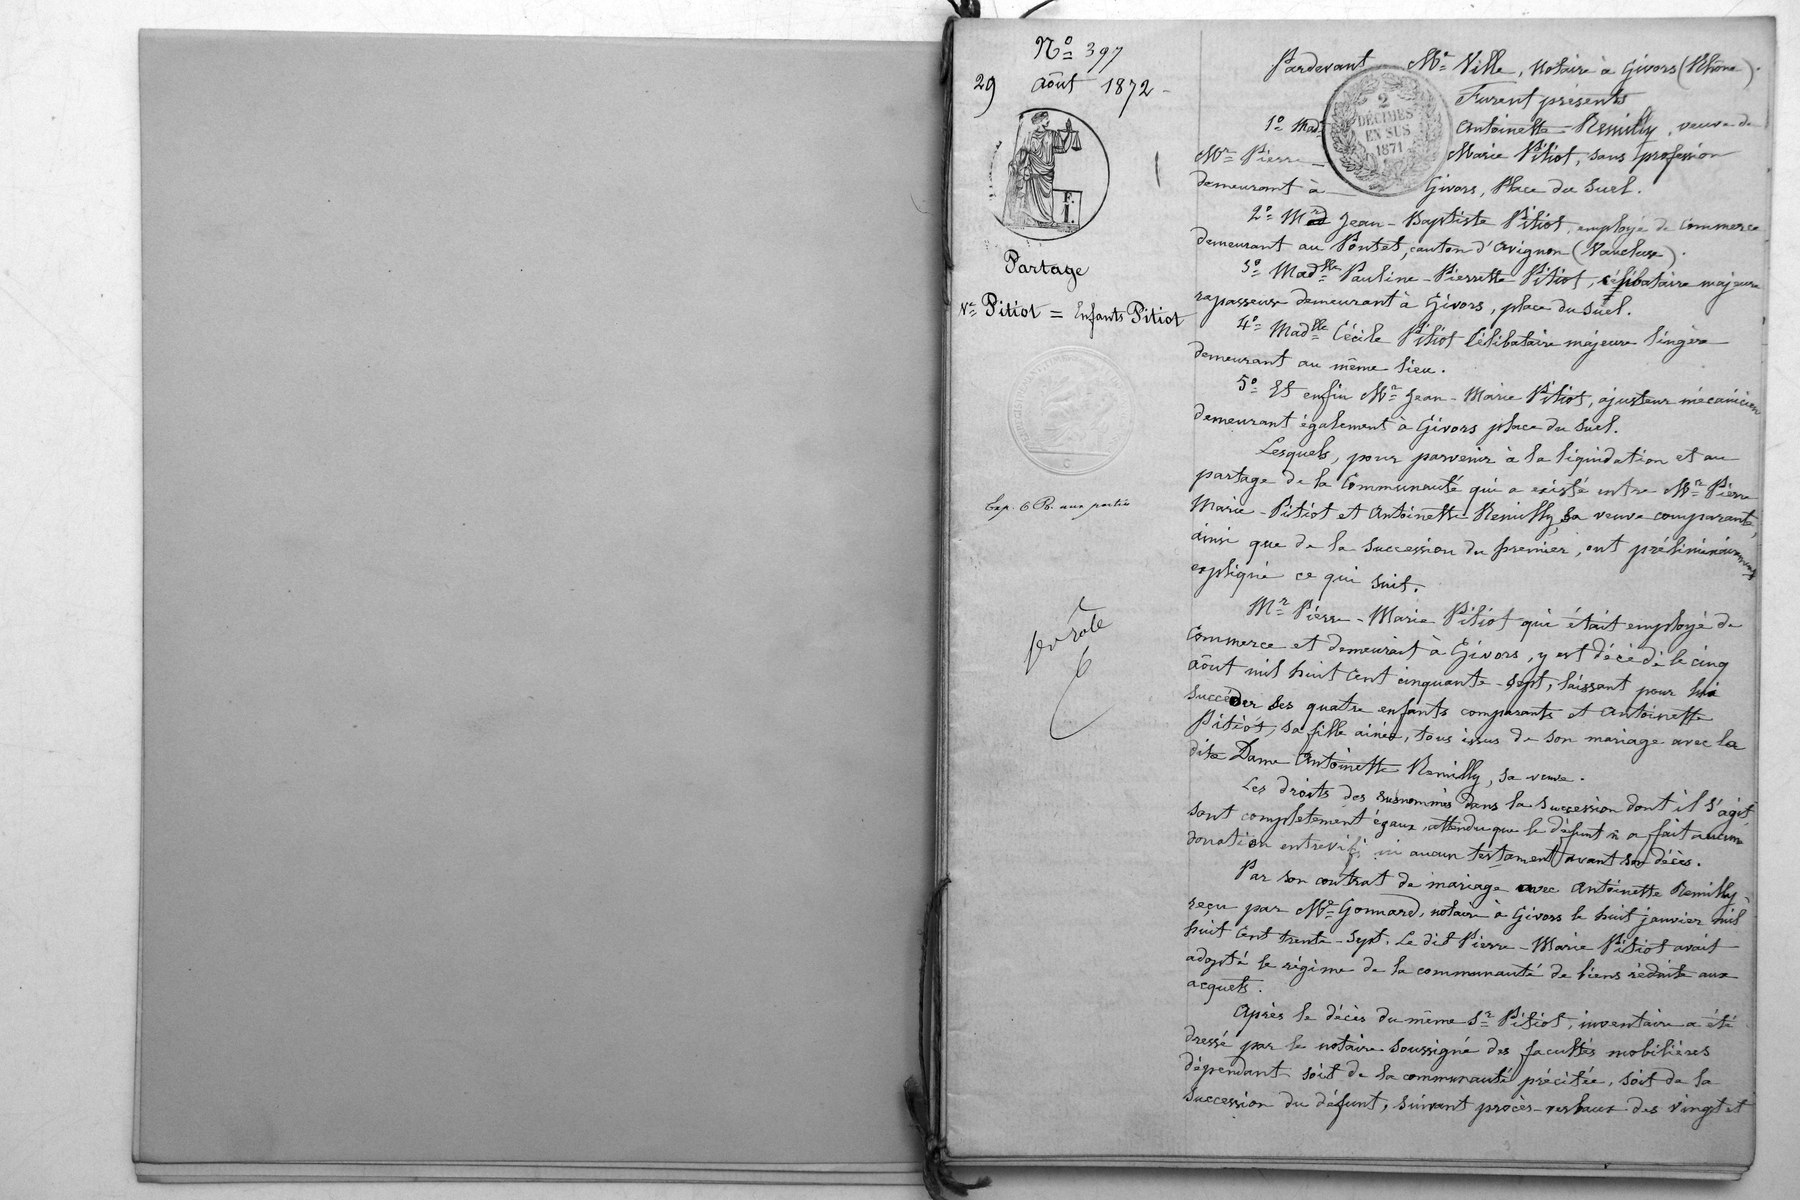 Nº 397
29 août 1872 -
F.
1.
Partage
Vve Pitiot = Enfants Pitiot
Exp. 6 Rô. aux parties
rôle
6
2
DÉCIMES
EN SUS
1871
Pardevant Me Ville, Notaire à Givors (Rhône).
Furent présents
1º Made Antoinette Remilly, veuve de
Mr Pierre - Marie Pitiot, sans profession
demeurant à Givors, Place du Suel.
2º Mr Jean-Baptiste Pitiot, employé de Commerce
demeurant au Pontet, canton d'Avignon (Vaucluse).
3º Madlle Pauline-Pierrette Pitiot, célibataire majeure
repasseuse demeurant à Givors, place du Suel.
4º Madlle Cécile Pitiot Célibataire majeure lingère
demeurant au même lieu.
5º Et enfin Mr Jean-Marie Pitiot, ajusteur mécanicien
demeurant également à Givors place du Suel.
Lesquels, pour parvenir à la liquidation et au
partage de la Communauté qui a existé entre Mr Pierre
Marie-Pitiot et Antoinette Remilly, sa veuve comparante,
ainsi que de la succession du premier, ont préliminairement
expliqué ce qui suit.
Mr Pierre-Marie Pitiot qui était employé de
Commerce et demeurait à Givors, y est décédé le cinq
août mil huit cent cinquante-sept, laissant pour lui
succéder ses quatre enfants comparants et Antoinette
Pitiot, sa fille ainée, tous issus de son mariage avec la
dite Dame Antoinette Remilly, sa veuve.
Les droits des susnommés dans la succession dont il s'agit
sont complètement égaux, attendu que le défunt n'a fait aucune
donation entrevifs ni aucun testament avant son décès.
Par son contrat de mariage avec Antoinette Remilly,
reçu par Me Gonnard, notaire à Givors le huit janvier mil
huit cent trente-sept, Le dit Pierre-Marie Pitiot avait
adopté le régime de la communauté de biens réduite aux
acquets.
Après le décès du même Sr Pitiot, inventaire a été
dressé par le notaire soussigné des facultés mobilières
dépendant soit de la communauté précitée, soit de la
succession du défunt, suivant procès-verbaux des vingt et